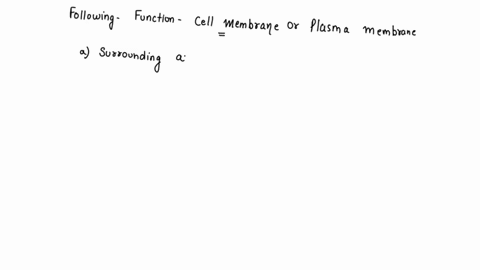 Following - Function - Cell membrane or Plasma membrane
a) Surrounding a